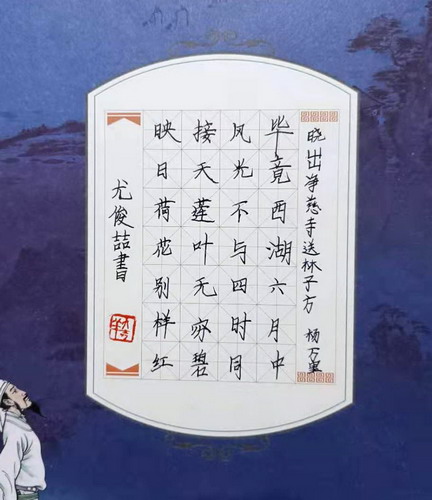 晓出净慈寺送林子方 杨万里
毕竟西湖六月中
风光不与四时同
接天莲叶无穷碧
映日荷花别样红
尤俊喆書